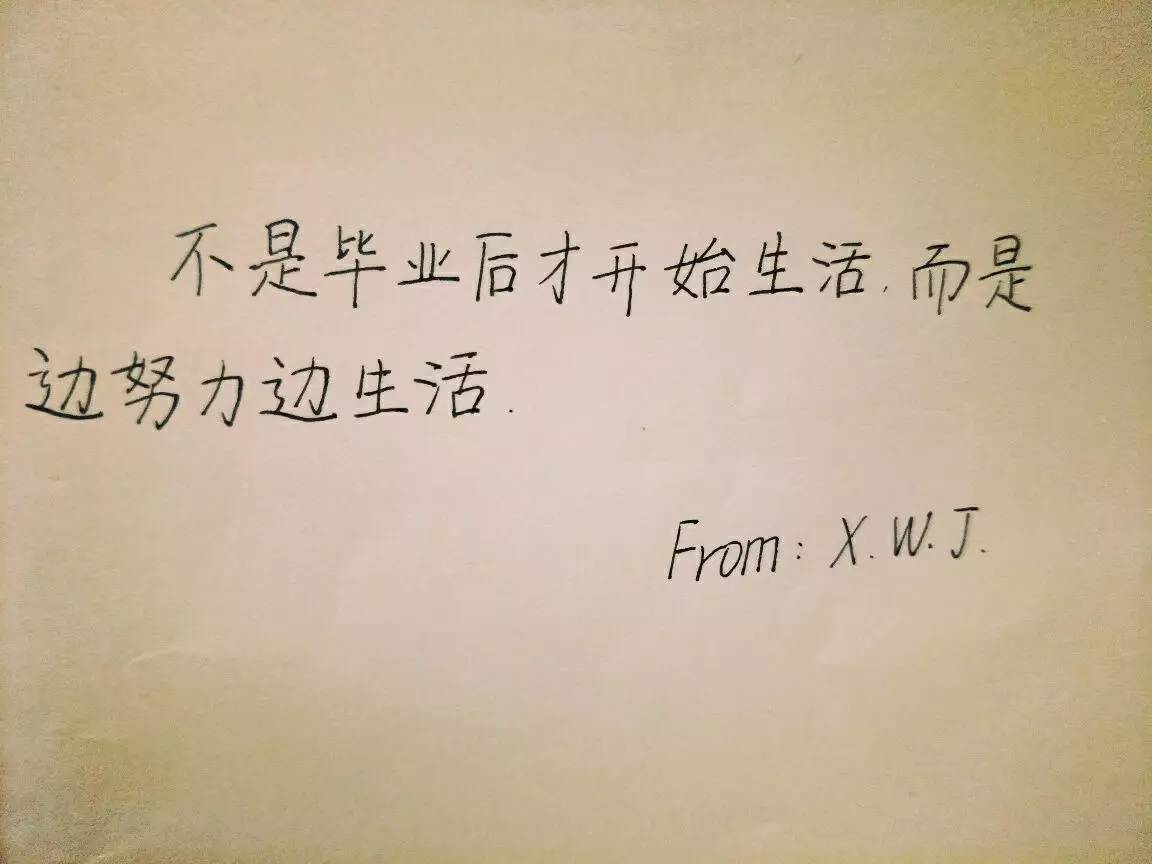 不是毕业后才开始生活,而是
边努力边生活.
From: X.W.J.